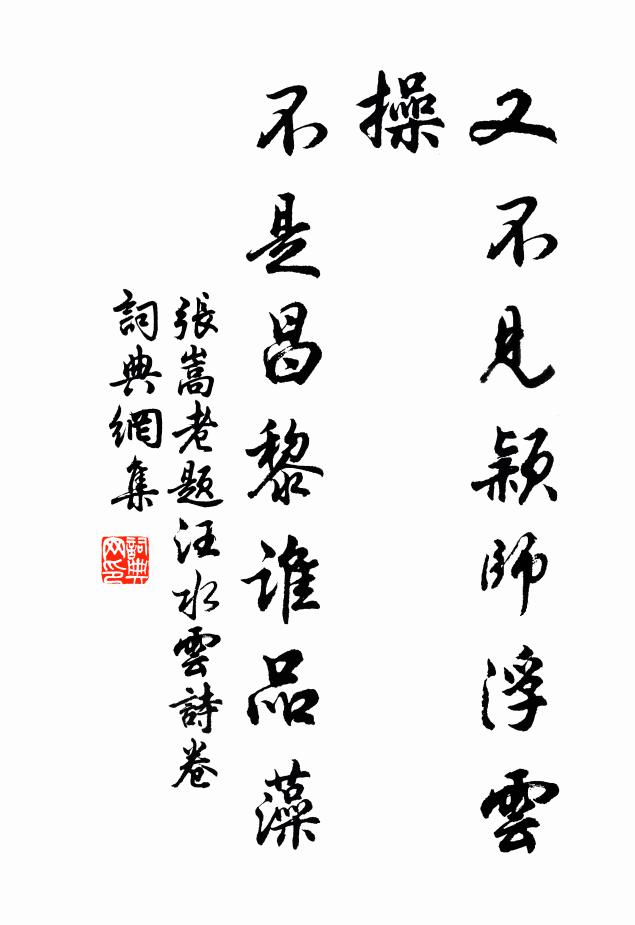 又不見穎師浮雲
操
不是昌黎誰品藻
張嵩老題汪水雲詩卷
詞典網集
詞典
网印